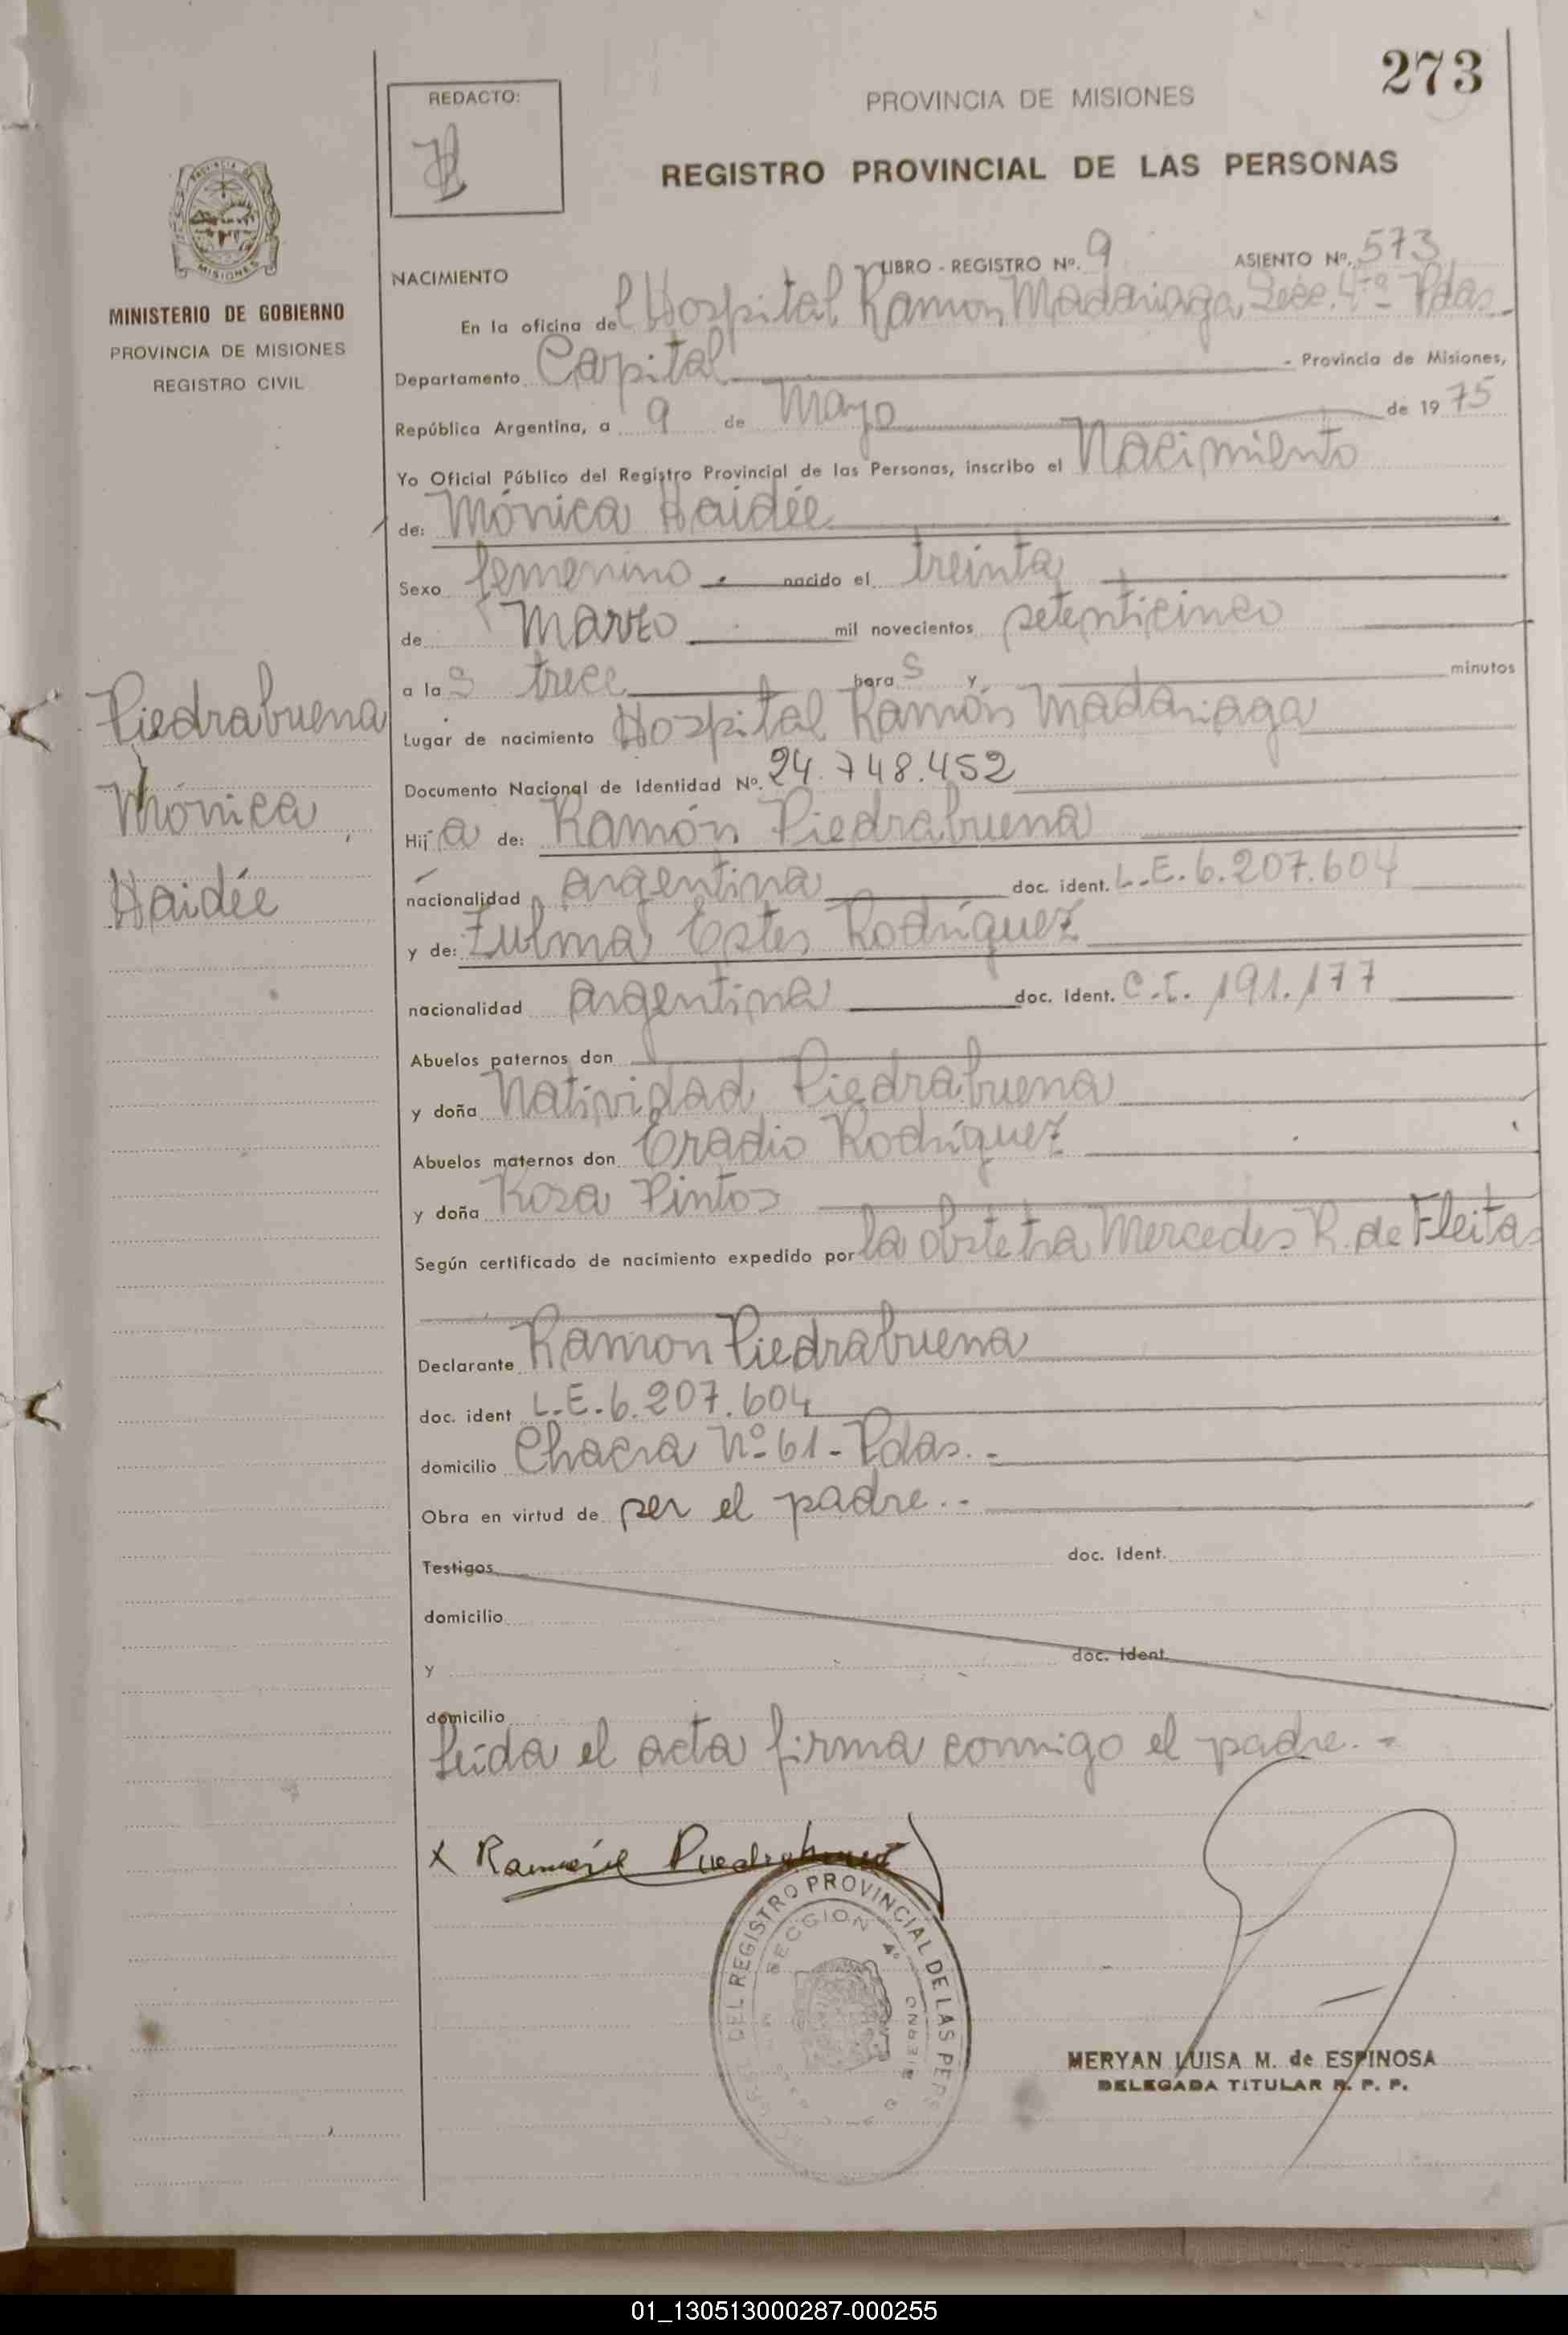 273
REDACTO:
PROVINCIA DE MISIONES
REGISTRO PROVINCIAL DE LAS PERSONAS
MISIONES
MINISTERIO DE GOBIERNO
PROVINCIA DE MISIONES
REGISTRO CIVIL
NACIMIENTO LIBRO - REGISTRO Nº. 9 ASIENTO Nº. 573
En la oficina del Hospital Ramon Madariaga Secc. 4ª Pdas.
Departamento Capital - Provincia de Misiones,
República Argentina, a 9 de Mayo de 1975
Yo Oficial Público del Registro Provincial de las Personas, inscribo el Nacimiento
de: Mónica Haidée
Sexo femenino nacido el treinta
de Marzo mil novecientos setenticinco
a las trece horas y minutos
Piedrabuena
Mónica
Haidée
Lugar de nacimiento Hospital Ramón Madariaga
Documento Nacional de Identidad Nº. 24.748.452
Hija de: Ramón Piedrabuena
nacionalidad argentina doc. ident. L.E. 6.207.604
y de: Zulma Ester Rodríguez
nacionalidad argentina doc. Ident. C.I. 191.177
Abuelos paternos don
y doña Natividad Piedrabuena
Abuelos maternos don Eradio Rodríguez
y doña Rosa Pintos
Según certificado de nacimiento expedido por la obstetra Mercedes R. de Fleitas
Declarante Ramon Piedrabuena
doc. ident L.E. 6.207.604
domicilio Chacra Nº 61 - Pdas. -
Obra en virtud de ser el padre. -
Testigos doc. Ident.
domicilio
y doc. ident.
domicilio
Leída el acta firma conmigo el padre. -
x Ramón Piedrabuena
DEL REGISTRO PROVINCIAL DE LAS PERS
SECCION 4ª
MERYAN LUISA M. de ESPINOSA
DELEGADA TITULAR R. P. P.
01_130513000287-000255